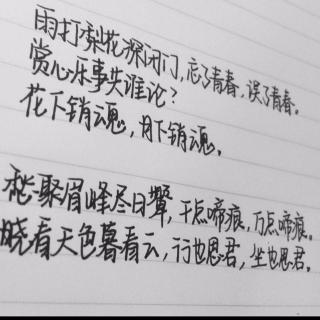 雨打梨花深闭门，忘了青春，误了青春。
赏心乐事失谁论？
花下销魂，月下销魂。
愁聚眉峰尽日颦，千点啼痕，万点啼痕。
晓看天色暮看云，行也思君，坐也思君。